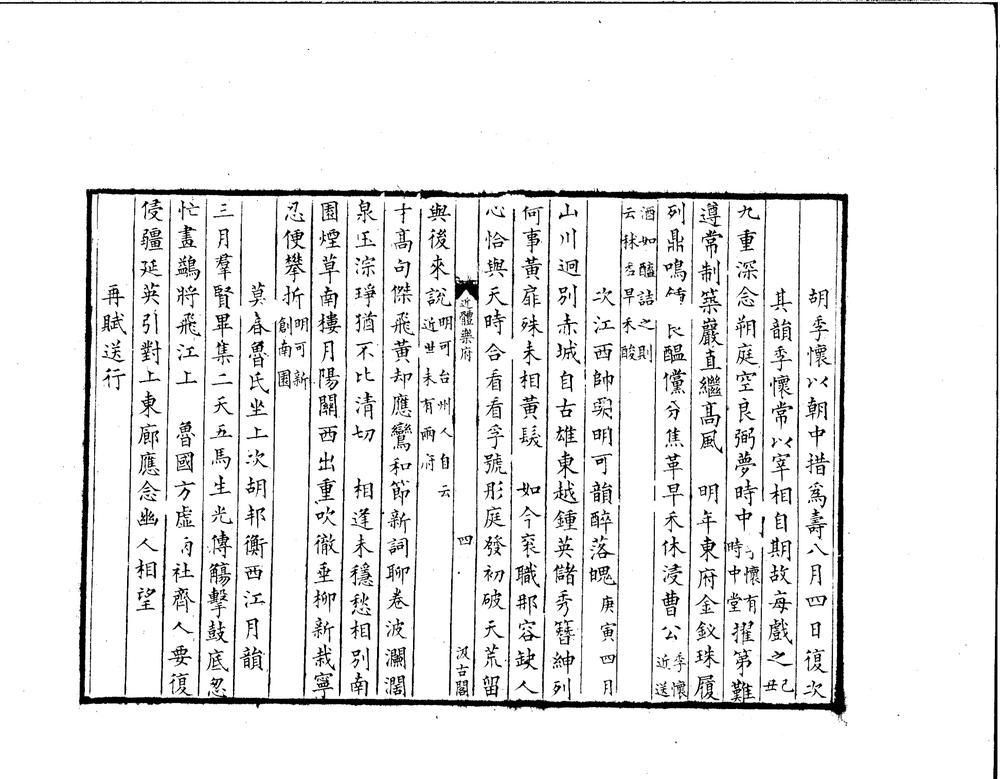 胡季懷以朝中措爲壽八月四日復次
其韻季懷常以宰相自期故每戲之己丑
九重深念朔庭空良弼夢時中懷有時中堂擢第難
遵常制築巖直繼髙風　明年東府金釵珠履
列鼎鳴　醖儻分焦革早禾休浸曹公季懷近送
酒如醯詰之則云秫秀早禾酸
次江西帥吳明可韻醉落魄　庚寅四月
山川迥别赤城自古雄東越鍾英儲秀簪紳列
何事黃扉殊未相黃髮　如今衮職那容缺人
心恰與天時合看看孚號彤庭發初破天荒留
近體樂府　四　汲古閣
與後來說明可台州人自云近世未有兩府
才髙句傑飛黃却應鸞和節新詞聊卷波瀾濶
泉玉淙琤猶不比清切　相逢未穩愁相别南
園煙草南樓月陽關西出重吹徹垂柳新栽寧
忍便攀折明可新創南園
莫春魯氏坐上次胡邦衡西江月韻
三月羣賢畢集二天五馬生光傳觴擊鼓底忽
忙畫鷁將飛江上　魯國方虛右社齊人要復
侵疆延英引對上東廊應念幽人相望
再賦送行